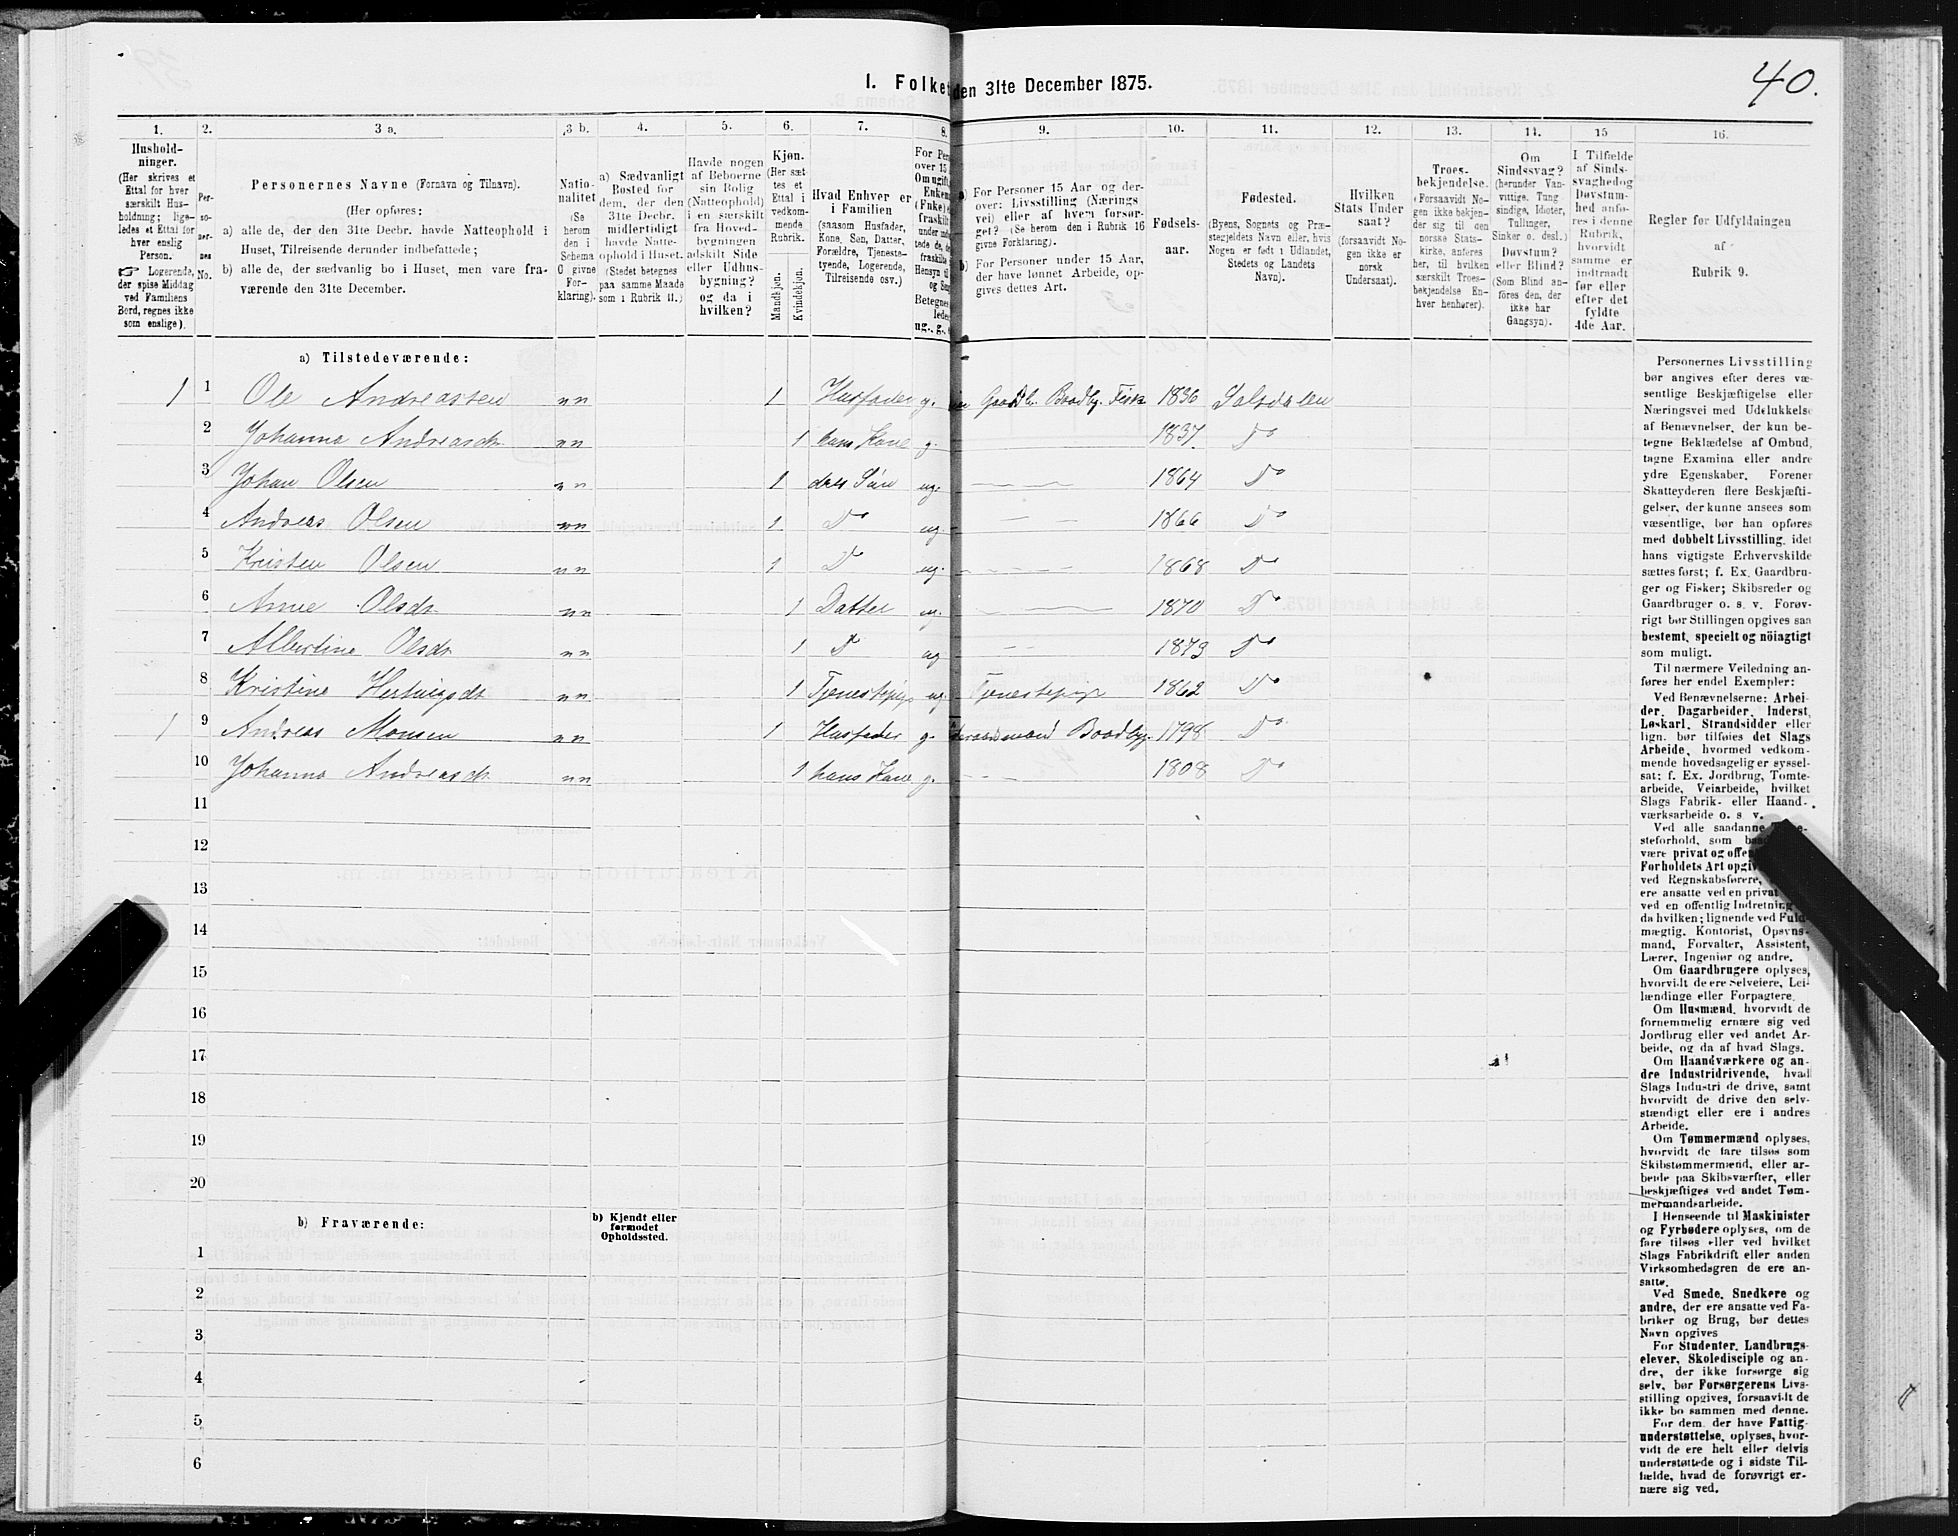 40.
I. Folket den 31te December 1875.
1. 2. 3 a. 3 b. 4. 5. 6. 7. 8. 9. 10. 11. 12. 13. 14. 15 16.
Hushold-
ninger.
(Her skrives et
Ettal for hver
særskilt Hus-
holdning; lige-
ledes et Ettal for
hver enslig
Person.
☞ Logerende,
der spise Middag
ved Familiens
Bord, regnes ikke
som enslige).
Per-
so-
ner-
nes
No.
Personernes Navne (Fornavn og Tilnavn).
(Her opføres:
a) alle de, der den 31te Decbr. havde Natteophold i
Huset, Tilreisende derunder indbefattede;
b) alle de, der sædvanlig bo i Huset, men vare fra-
værende den 31te December.
Natio-
nalitet
(Se
herom
den i
Schema
C givne
For-
klaring).
a) Sædvanligt
Bosted for
dem, der den
31te Decbr.
midlertidigt
havde Natte-
ophold i Huset.
(Stedet betegnes
paa samme Maade
som i Rubrik 11.)
Havde nogen
af Beboerne
sin Bolig
(Natteophold)
i en særskilt
fra Hoved-
bygningen
adskilt Side
eller Udhus-
bygning?
og da i
hvilken?
Kjøn.
(Her sæt-
tes et
Ettal i
vedkom-
mende
Rubrik.
Mandkjøn.
Kvindekjøn.
Hvad Enhver er
i Familien
(saasom Husfader,
Kone, Søn, Datter,
Forældre, Tjeneste-
tyende, Logerende,
Tilreisende osv.)
For Pers
over 15
Om ugift,
Enkem
(Enke) e
fraskilt
under
tede de,
fraskilte
Hensyn til
og Sen
Betegnes
lede
ug., g., e
a) For Personer 15 Aar og der-
over: Livsstilling (Nærings
vei) eller af hvem forsør-
get? (Se herom den i Rubrik 16
givne Forklaring).
b) For Personer under 15 Aar,
der have lønnet Arbeide, op-
gives dettes Art.
Fødsels-
aar.
Fødested.
(Byens, Sognets og Præ-
stegjeldets Navn eller, hvis
Nogen er født i Udlandet,
Stedets og Landets
Navn).
Hvilken
Stats Under
saat?
(forsaavidt No-
gen ikke er
norsk
Undersaat).
Troes-
bekjendelse.
(Forsaavidt No-
gen ikke bekjen-
der sig til den
norske Stats-
kirke, anføres
her, til hvilken
særskilt Troes-
bekjendelse En-
hver henhører).
Om
Sindssvag?
(herunder Van-
vittige, Tung
sindige, Idioter,
Tullinger,
Sinker o. desl.)
Døvstum?
eller Blind?
(Som Blind an-
føres den, der
ikke har
Gangsyn).
I Tilfælde
af Sinds-
svaghedog
Døvstum-
hed anfø-
res i denne
Rubrik,
hvorvidt
samme er
indtraadt
før eller
efter det
fyldte
4de Aar.
Regler for Udfyldningen
af
Rubrik 9.
a) Tilstedeværende:
1 1 Ole Andreassen nn 1 Husfader g. Gaardb. Baadby. Fisk 1836 Saltdalen
2 Johanna Andreasdr nn 1 hans Kone g. 1837 Do
3 Johan Olsen nn 1 deres Søn ug. 1864 Do
4 Andreas Olsen nn 1 Do ug. 1866 Do
5 Kristen Olsen nn 1 Do ug. 1868 Do
6 Anne Olsdr nn 1 Datter ug. 1870 Do
7 Albertine Olsdr nn 1 Do ug 1873 Do
8 Kristine nn 1 Tjenestepige ug. Tjenestepige 1862 Do
1 9 Andreas Monsen nn 1 Husfader g. Baadbyg. 1798 Do
10 Johanna Andreasdr nn 1 hans Kone g. 1808 Do
11
12
13
14
15
16
17
18
19
20
b) Fraværende:
b) Kjendt eller
formodet
Opholdssted.
1
2
3
4
5
6
Personernes Livsstilling
bør angives efter deres væ-
sentlige Beskjæftigelse eller
Næringsvei med Udelukkelse
af Benævnelser, der kun be-
tegne Beklædelse af Ombud,
tagne Examina eller andre
ydre Egenskaber. Forener
Skatteyderen flere Beskjæfti-
gelser, der kunne ansees som
væsentlige, bør han opføres
med dobbelt Livsstilling, idet
hans vigtigste Erhvervskilde
sættes først; f. Ex. Gaardbru-
ger og Fisker; Skibsreder og
Gaardbruger o. s. v. Forøv-
rigt bør Stillingen opgives saa
bestemt, specielt og nöiagtigt
som muligt.
Til nærmere Veiledning an-
føres her endel Exempler:
Ved Benævnelserne: Arbei-
der, Dagarbeider, Inderst,
Løskarl, Strandsidder eller
lign. bør tilføies det Slags
Arbeide, hvormed vedkom-
mende hovedsagelig er syssel-
sat; f. Ex. Jordbrug, Tomte-
arbeide, Veiarbeide, hvilket
Slags Fabrik- eller Haand-
værksarbeide o. s. v.
Ved alle saadanne
steforhold, som
være privat og
Forholdets Art
ved Regnskabsførere,
ere ansatte ved en privat
ved en offentlig Indretning
da hvilken; lignende ved Fuld-
mægtig, Kontorist, Opsyns-
mand, Forvalter, Assistent,
Lærer, Ingeniør og andre.
Om Gaardbrugere oplyses,
hvorvidt de ere Selveiere, Lei-
lændinge eller Forpagtere.
Om Husmænd, hvorvidt de
fornemmelig ernære sig ved
Jordbrug eller ved andet Ar-
beide, og da af hvad Slags.
Om Haandværkere og an-
dre Industridrivende, hvad
Slags Industri de drive, samt
hvorvidt de drive den selv-
stændigt eller ere i andres
Arbeide.
Om Tømmermænd oplyses,
hvorvidt de fare tilsøs som
Skibstømmermænd, eller ar-
beide paa Skibsværfter, eller
beskjæftiges ved andet Tøm-
mermandsarbeide.
I Henseende til Maskinister
og Fyrbødere oplyses, om de
fare tilsøs eller ved hvilket
Slags Fabrikdrift eller anden
Virksomhedsgren de ere an-
satte.
Ved Smede, Snedkere og
andre, der ere ansatte ved Fa-
briker og Brug, bør dettes
Navn opgives
For Studenter, Landbrugs-
elever, Skoledisciple og an-
dre, der ikke forsørge sig
selv, bør Forsørgerens Livs-
stilling opgives, forsaavidt de
ikke bo sammen med denne.
For dem, der have Fattig-
understøttelse, oplyses, hvor-
vidt de ere helt eller delvis
understøttede og i sidste Til-
fælde, hvad de forøvrigt er-
nære sig ved.